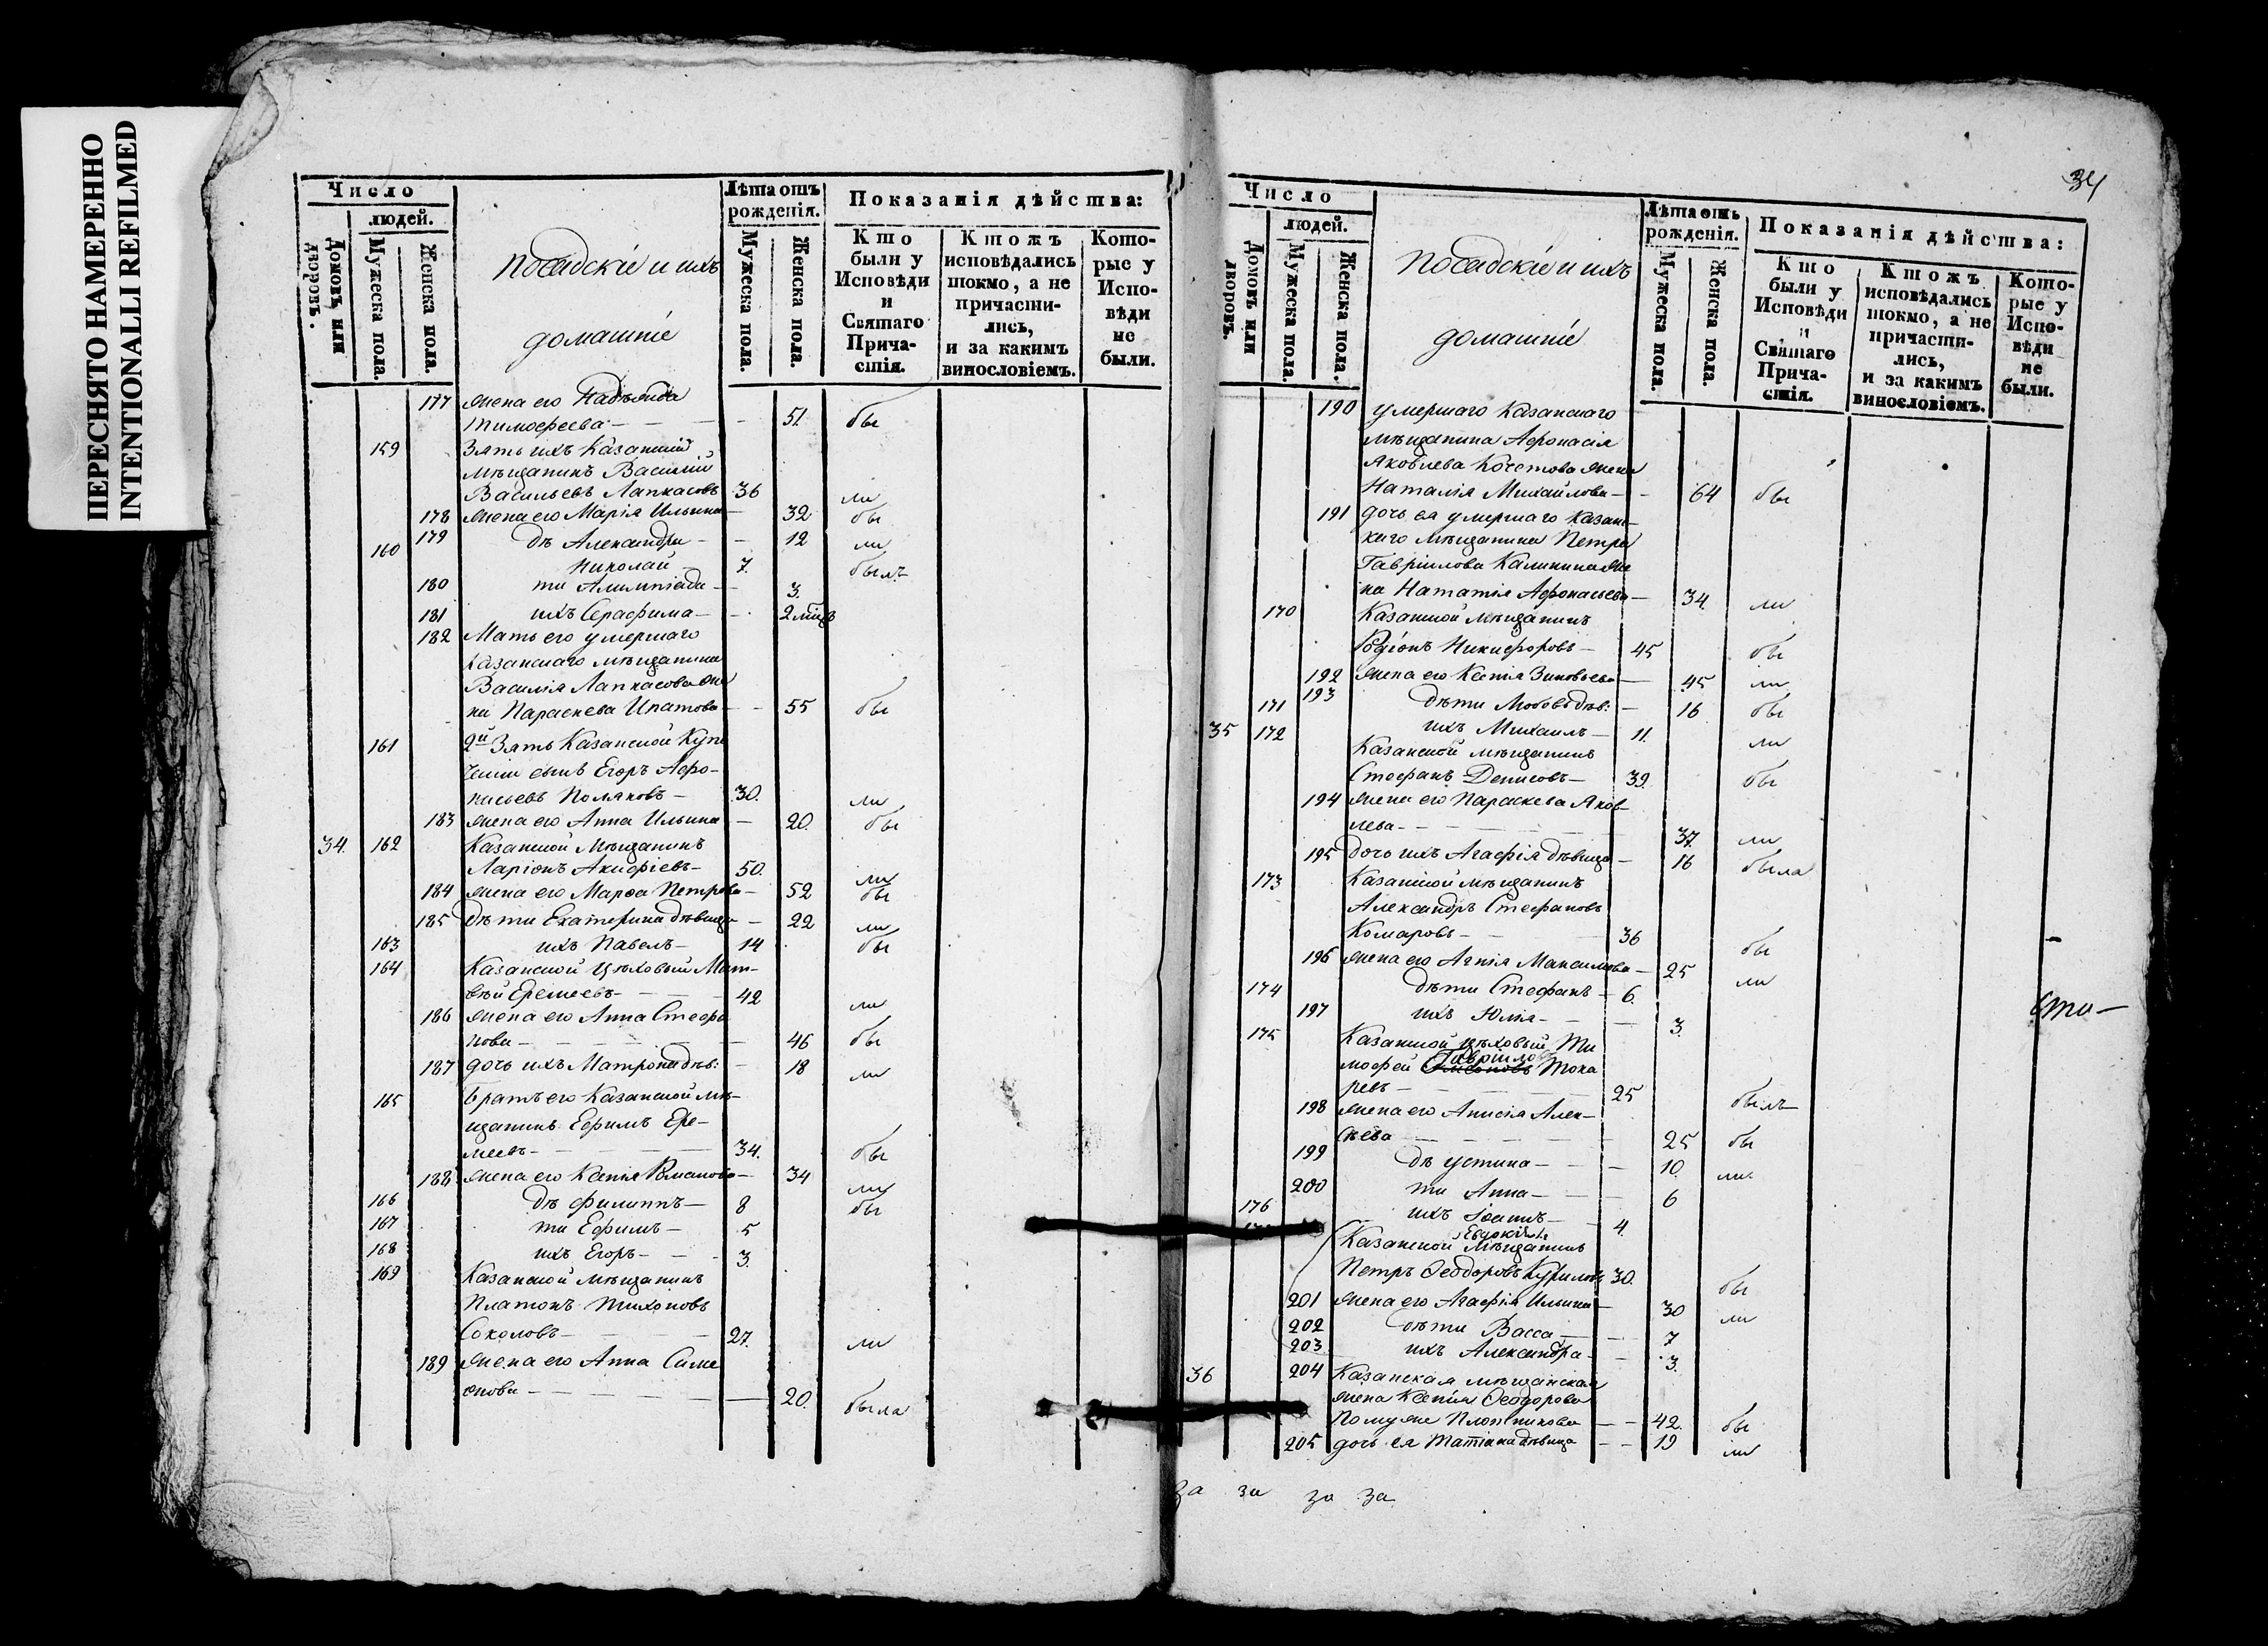 ПЕРЕСНЯТО НАМЕРЕННО
INTENTIONALLI REFILMED
Число
людей.
Домовъ или дворовъ.
Мужеска пола.
Женска пола.
Посадскіе и ихъ
домашніе
Лѣта отъ рожденія.
Мужеска пола.
Женска пола.
Показанія дѣйства:
Кто были у Исповѣди и Святаго Причастія.
Ктожъ исповѣдались токмо, а не причастились, и за какимъ винословіемъ.
Которые у Исповѣди не были.
177 жена его Надѣжда
Тимофеева — 51. бы
159 Зять ихъ Казанскій
мѣщанинъ Василій
Васильевъ Лапкасовъ 36 ли
178 жена его Марія Ильина — 32 бы
179 дѣ Александра — 12 ли
160 Николай — 7. былъ
180 ти Алимпіада — 3.
181 ихъ Серафима — 2 мѣц
182 Мать его умершаго
Казанскаго мѣщанина
Василія Лапкасова же
на Параскева Ипатова — 55 бы
161 2й Зять Казанской Купе
ческій сынъ Егоръ Афо-
насьевъ Поляковъ — 30. ли
183 жена его Анна Ильина — 20. бы
34. 162 Казанской Мѣщанинъ
Ларіонъ Акифіевъ — 50. ли
184 жена его Марѳа Петрова — 52 бы
185 дѣти Екатерина дѣвица — 22 ли
163 ихъ Павелъ — 14 бы
164 Казанской цѣховый Мат-
вѣй Еремеевъ — 42 ли
186 жена его Анна Стефа
нова — 46 бы
187 дочь ихъ Матрона дѣв: — 18 ли
165 Братъ его Казанской мѣ-
щанинъ Ефимъ Ере-
меевъ — 34. бы
188 жена его Ксенія Романова — 34 ли
166 дѣ Филиппъ — 8 бы
167 ти Ефимъ — 5
168 ихъ Егоръ — 3.
169 Казанской мѣщанинъ
Платонъ Тихоновъ
Соколовъ — 27. ли
189 жена его Анна Симе
онова — 20. была
34
Число
людей.
Домовъ или дворовъ.
Мужеска пола.
Женска пола.
Посадскіе и ихъ
домашніе
Лѣта отъ рожденія.
Мужеска пола.
Женска пола.
Показанія дѣйства:
Кто были у Исповѣди и Святаго Причастія.
Ктожъ исповѣдались токмо, а не причастились, и за какимъ винословіемъ.
Которые у Исповѣди не были.
190 умершаго Казанскаго
мѣщанина Афонасія
Яковлева Кочетова жена
Наталія Михайлова — 64 бы
191 дочь ея умершаго Казанс-
каго мѣщанина Петра
Гавріилова Калинина же
на Наталія Афонасьева — 34. ли
170 Казанской мѣщанинъ
Родіонъ Никифоровъ — 45 бы
192 жена его Ксенія Зиновьева — 45 ли
193 дѣти Любовь дѣв: — 16 бы
171 ихъ Михаилъ — 11. ли
35 172 Казанской мѣщанинъ
Стефанъ Денисовъ — 39. бы
194 жена его Параскева Яков-
лева — 37. ли
195 дочь ихъ Агафія дѣвица — 16 была
173 Казанской мѣщанинъ
Александръ Стефановъ
Комаровъ — 36 бы
196 жена его Агнія Максимова — 25 ли
174 дѣти Стефанъ — 6.
197 ихъ Юлія — 3.
175 Казанской цѣховый Ти
мофей Гавріиловъ Тока
ревъ — 25 былъ
198 жена его Анисія Алек-
сѣева — 25 бы
199 дѣ Устина — 10. ли
200 ти Анна — 6
176 ихъ Іоаннъ — 4.
Казанской Мѣщанинъ
Петръ Ѳеодоровъ Куриловъ 30. бы
201 жена его Агафія Ильина — 30 ли
202 дѣти Васса — 7
203 ихъ Александра — 3.
36 204 Казанская мѣщанская
жена Ксенія Ѳеодорова
По мужѣ Плотникова — 42. бы
205 дочь ея Татіана дѣвица — 19 ли
сто-
за за за за